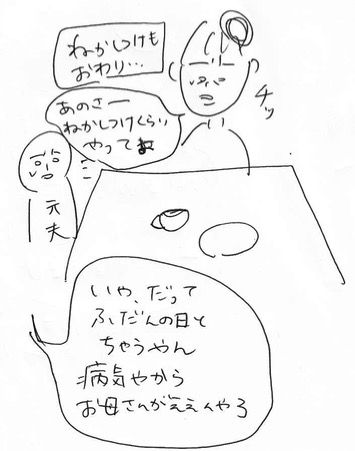 ねかしつけも
おわり…
チッ
あのさー
ねかしつけくらい
やってよね
元夫
いや、だって
ふだんの日と
ちゃうやん
病気やから
お母さんがええんやろ